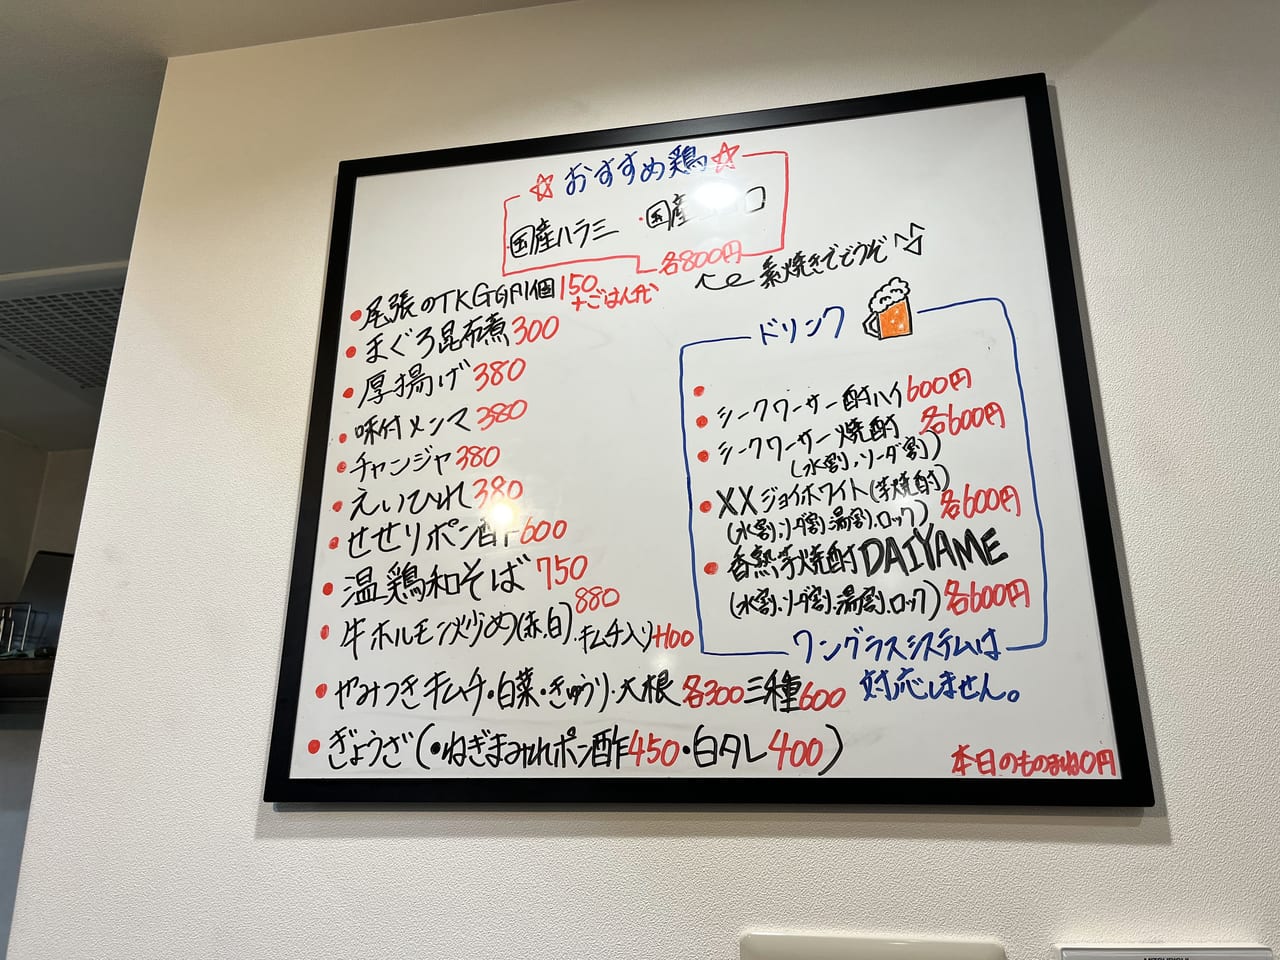 ☆おすすめ鶏☆
・国産ハラミ ・国産
各800円
素焼きでどうぞ
・尾張のTKG 1個150
+ごはん代
・まぐろ昆布煮300
・厚揚げ380
・味付メンマ380
・チャンジャ380
・えいひれ380
・せせりポン酢600
・温鶏和そば750
・牛ホルモン炒め(赤,白)880 ・キムチ入り+100
・やみつきキムチ・白菜・きゅうり・大根 各300 三種600
・ぎょうざ(・ねぎまみれポン酢450・白タレ400)
ドリンク
・シークワーサー酎ハイ600円
・シークワーサー焼酎 各600円
(水割,ソーダ割)
・XXジョイホワイト(芋焼酎)
(水割,ソーダ割,湯割,ロック) 各600円
・香熟芋焼酎DAIYAME
(水割,ソーダ割,湯割,ロック) 各600円
ワングラスシステムは
対応しません。
本日のものまね0円